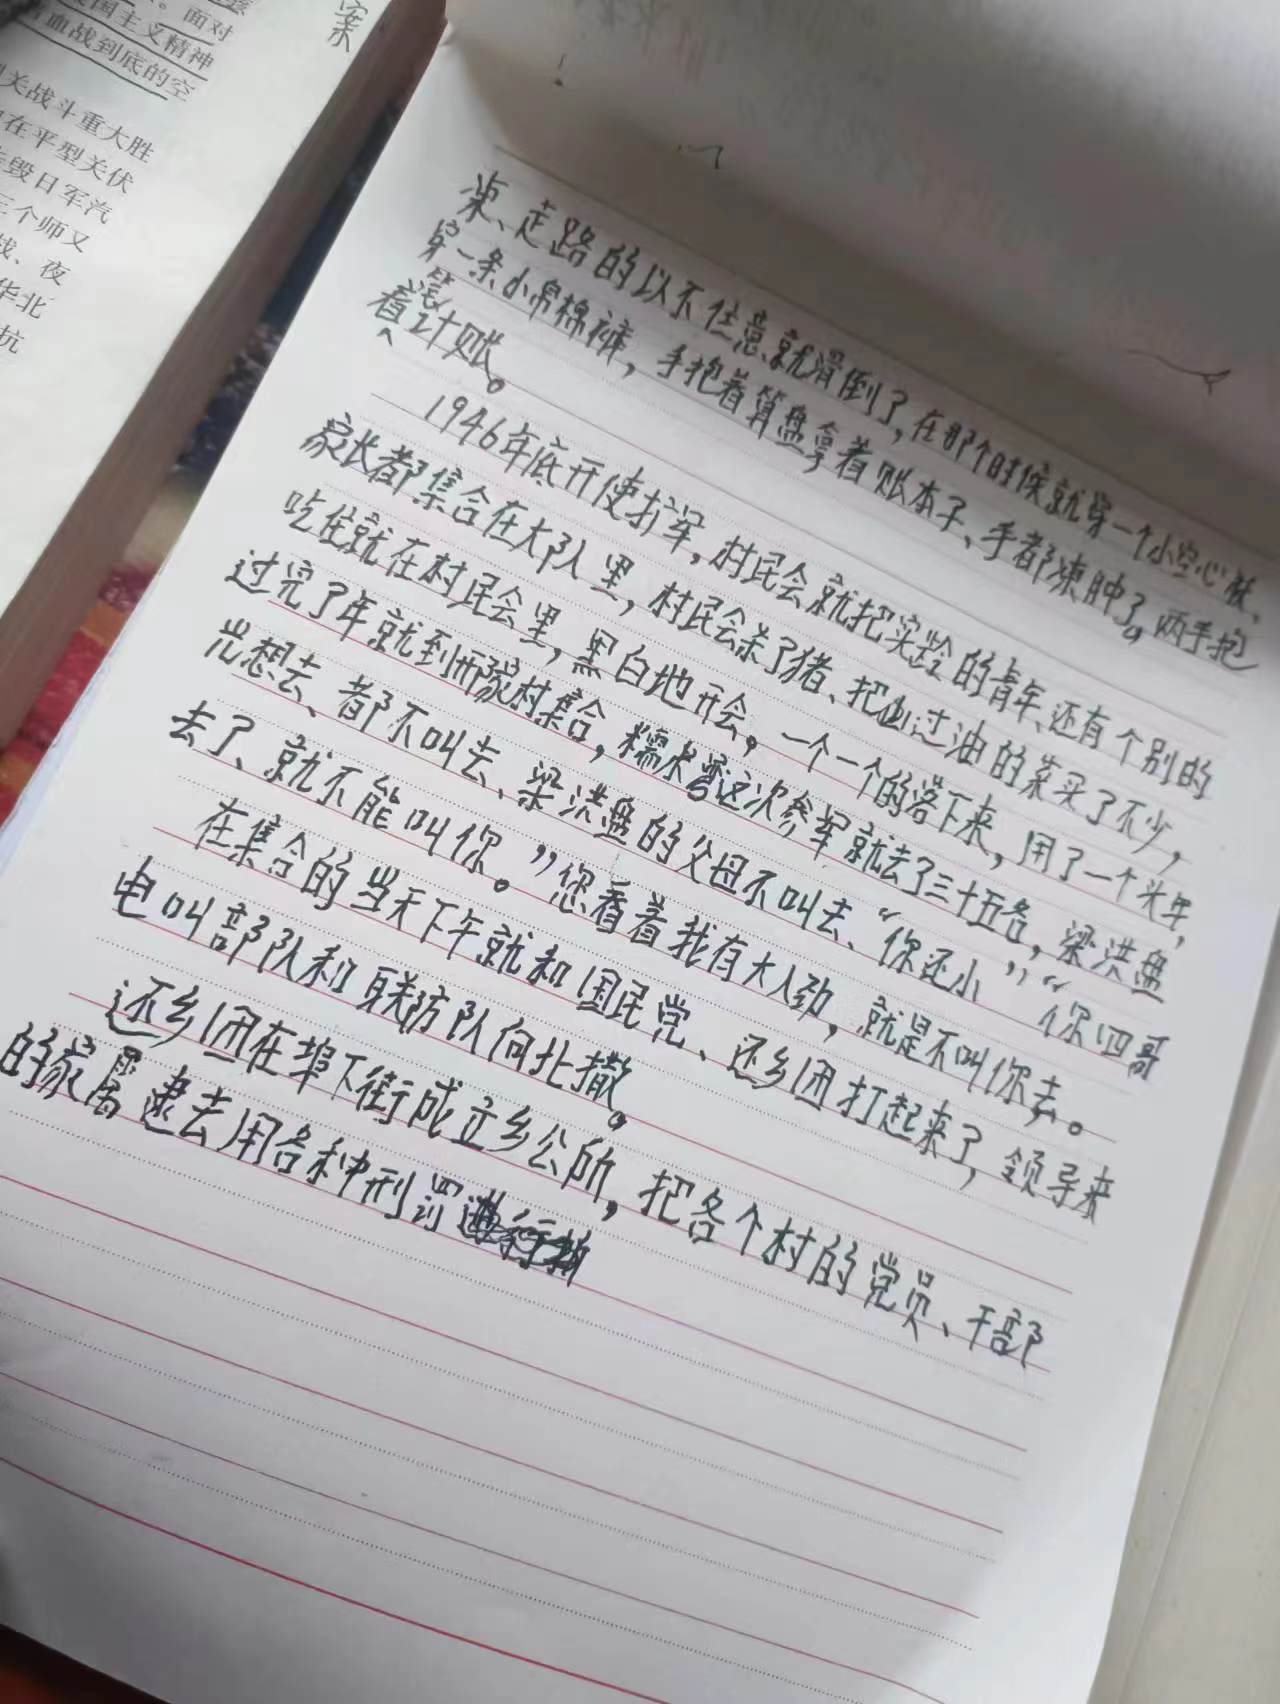 案
。面对
国主义精神
血战到底的空
关战斗重大胜
在平型关伏
毁日军汽
三个师又
战、夜
华北
抗
凍、走路的以不住意就滑倒了,在那个时候就穿一个小空心袄、
穿一条小帛棉裤,手抱着算盘拿着账本子、手都凍肿了。两手抱
着算计账。
1946年底开使扩军,村民会就把实龄的青年、还有个别的
家长都集合在大队里,村民会杀了猪、把出过油的菜买了不少,
吃住就在村民会里,黑白地开会。一个一个的落下来,用了一个头年,
过完了年就到邢家村集合,糯米弯这次参军就去了三十五名,梁洪盘
光想去、都不叫去、梁洪盘的父母不叫去、“你还小”“你四哥
去了、就不能叫你。”您看着我有大人劲,就是不叫你去。
在集合的当天下午就和国民党、还乡团打起来了,领导来
电叫部队和联防队向北撤。
还乡团在埠下街成立乡公所,把各个村的党员、干部
的家属逮去用各种刑罚